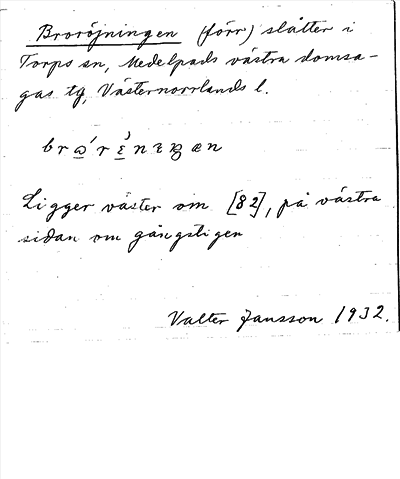 Broröjningen (förr) slåtter i
Torps sn, Medelpads västra domsa-
gas tg, Västernorrlands l.
Ligger väster om [82], på västra
sidan om gångstigen
Valter Jansson 1932.